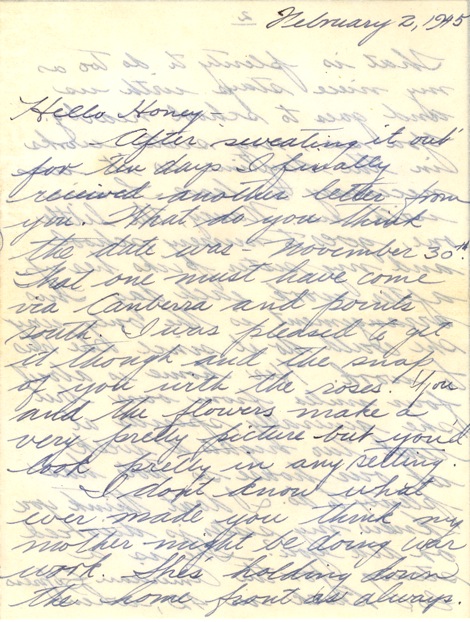 February 2, 1945
Hello Honey-
After "sweating it out"
for ten days I finally
received another letter from
you. What do you think
the date was - November 30th
That one must have come
via Canberra and points
south. I was pleased to get
it though and the snap
of you with the roses. You
and the flowers make a
very pretty picture but you'd
look pretty in any setting.
I don't know what
ever made you think my
mother might be doing war
work. She's holding down
the home front as always.